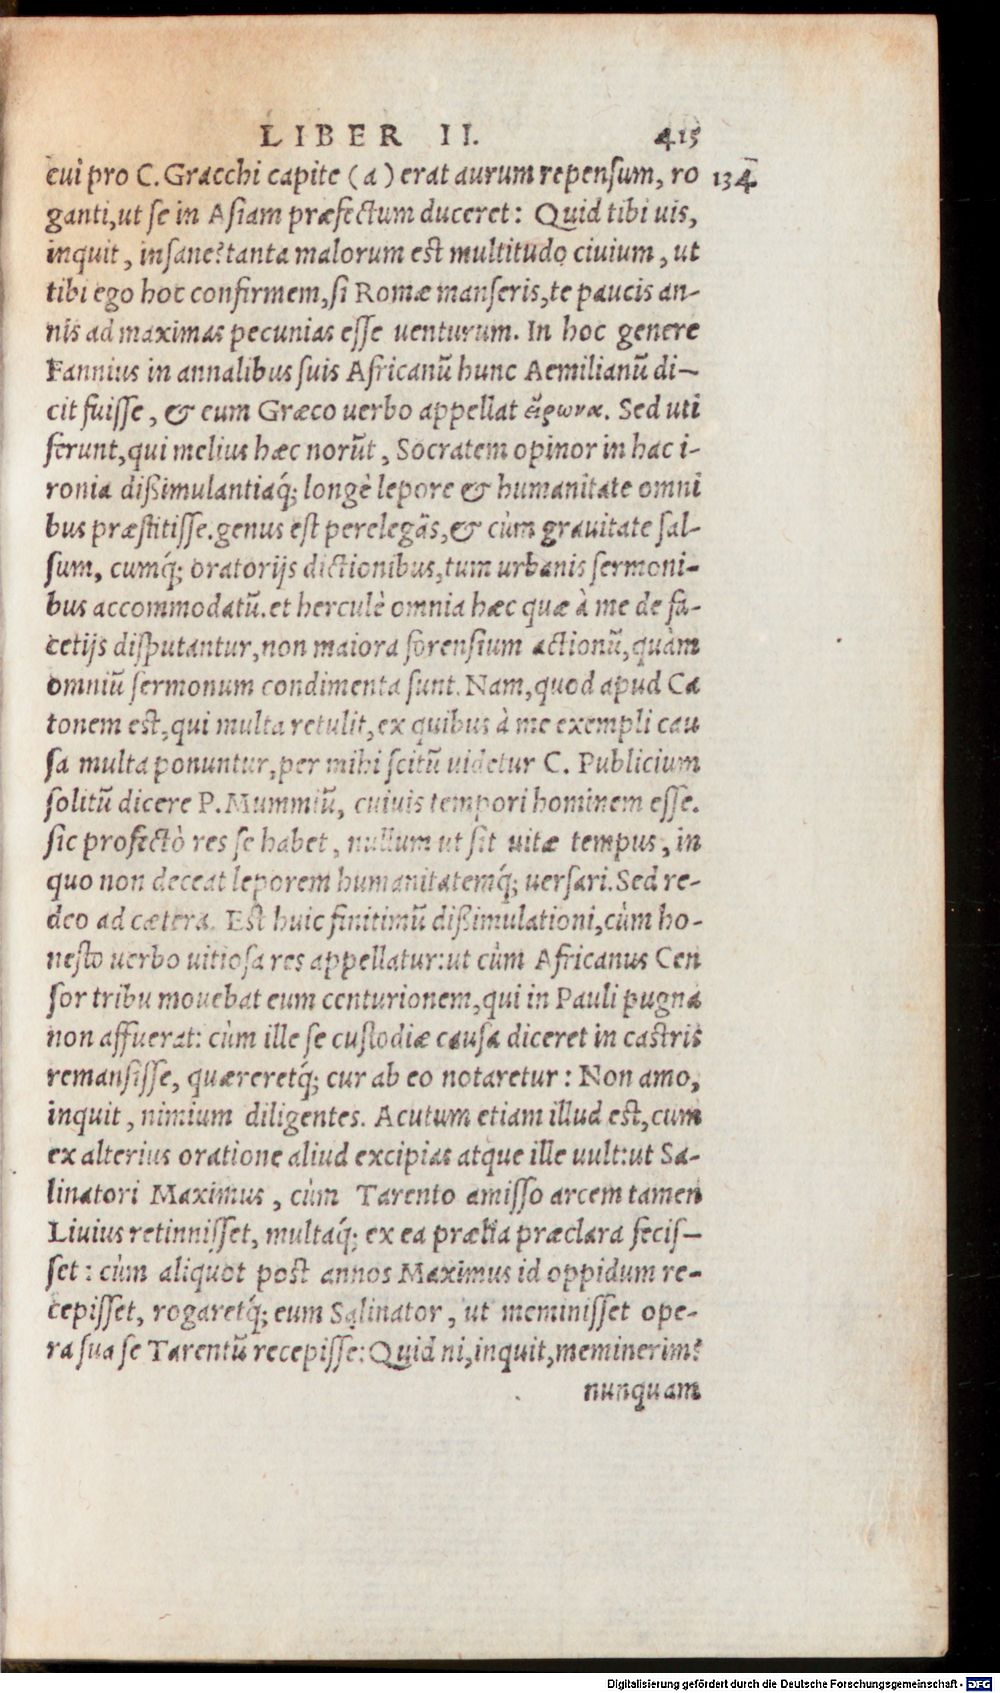 LIBER II. 415
cui pro C. Gracchi capite (a) erat aurum repensum, ro 134
ganti, ut se in Asiam præfectum duceret: Quid tibi uis,
inquit, insane? tanta malorum est multitudo ciuium, ut
tibi ego hoc confirmem, si Romæ manseris, te paucis an-
nis ad maximas pecunias esse uenturum. In hoc genere
Fannius in annalibus suis Africanũ hunc Aemilianũ di-
cit fuisse, & eum Græco uerbo appellat εἴρωνα. Sed uti
ferunt, qui melius hæc norũt, Socratem opinor in hac i-
ronia dißimulantiaq́; longè lepore & humanitate omni
bus præstitisse. genus est perelegãs, & cùm grauitate sal-
sum, cumq́; oratorijs dictionibus, tum urbanis sermoni-
bus accommodatũ. et herculè omnia hæc quæ à me de fa-
cetijs disputantur, non maiora forensium actionũ, quàm
omniũ sermonum condimenta sunt. Nam, quod apud Ca
tonem est, qui multa retulit, ex quibus à me exempli cau
sa multa ponuntur, per mihi scitũ uidetur C. Publicium
solitũ dicere P. Mummiũ, cuiuis tempori hominem esse.
sic profectò res se habet, nullum ut sit uitæ tempus, in
quo non deceat leporem humanitatemq́; uersari. Sed re-
deo ad cætera. Est huic finitimũ dißimulationi, cùm ho-
nesto uerbo uitiosa res appellatur: ut cùm Africanus Cen
sor tribu mouebat eum centurionem, qui in Pauli pugna
non affuerat: cùm ille se custodiæ causa diceret in castris
remansisse, quæreretq́; cur ab eo notaretur: Non amo,
inquit, nimium diligentes. Acutum etiam illud est, cum
ex alterius oratione aliud excipias atque ille uult: ut Sa-
linatori Maximus, cùm Tarento amisso arcem tamen
Liuius retinnisset, multaq́; ex ea prælia præclara fecis-
set: cùm aliquot post annos Maximus id oppidum re-
cepisset, rogaretq́; eum Salinator, ut meminisset ope-
ra sua se Tarentũ recepisse: Quid ni, inquit, meminerim?
nunquam
Digitalisierung gefördert durch die Deutsche Forschungsgemeinschaft - DFG